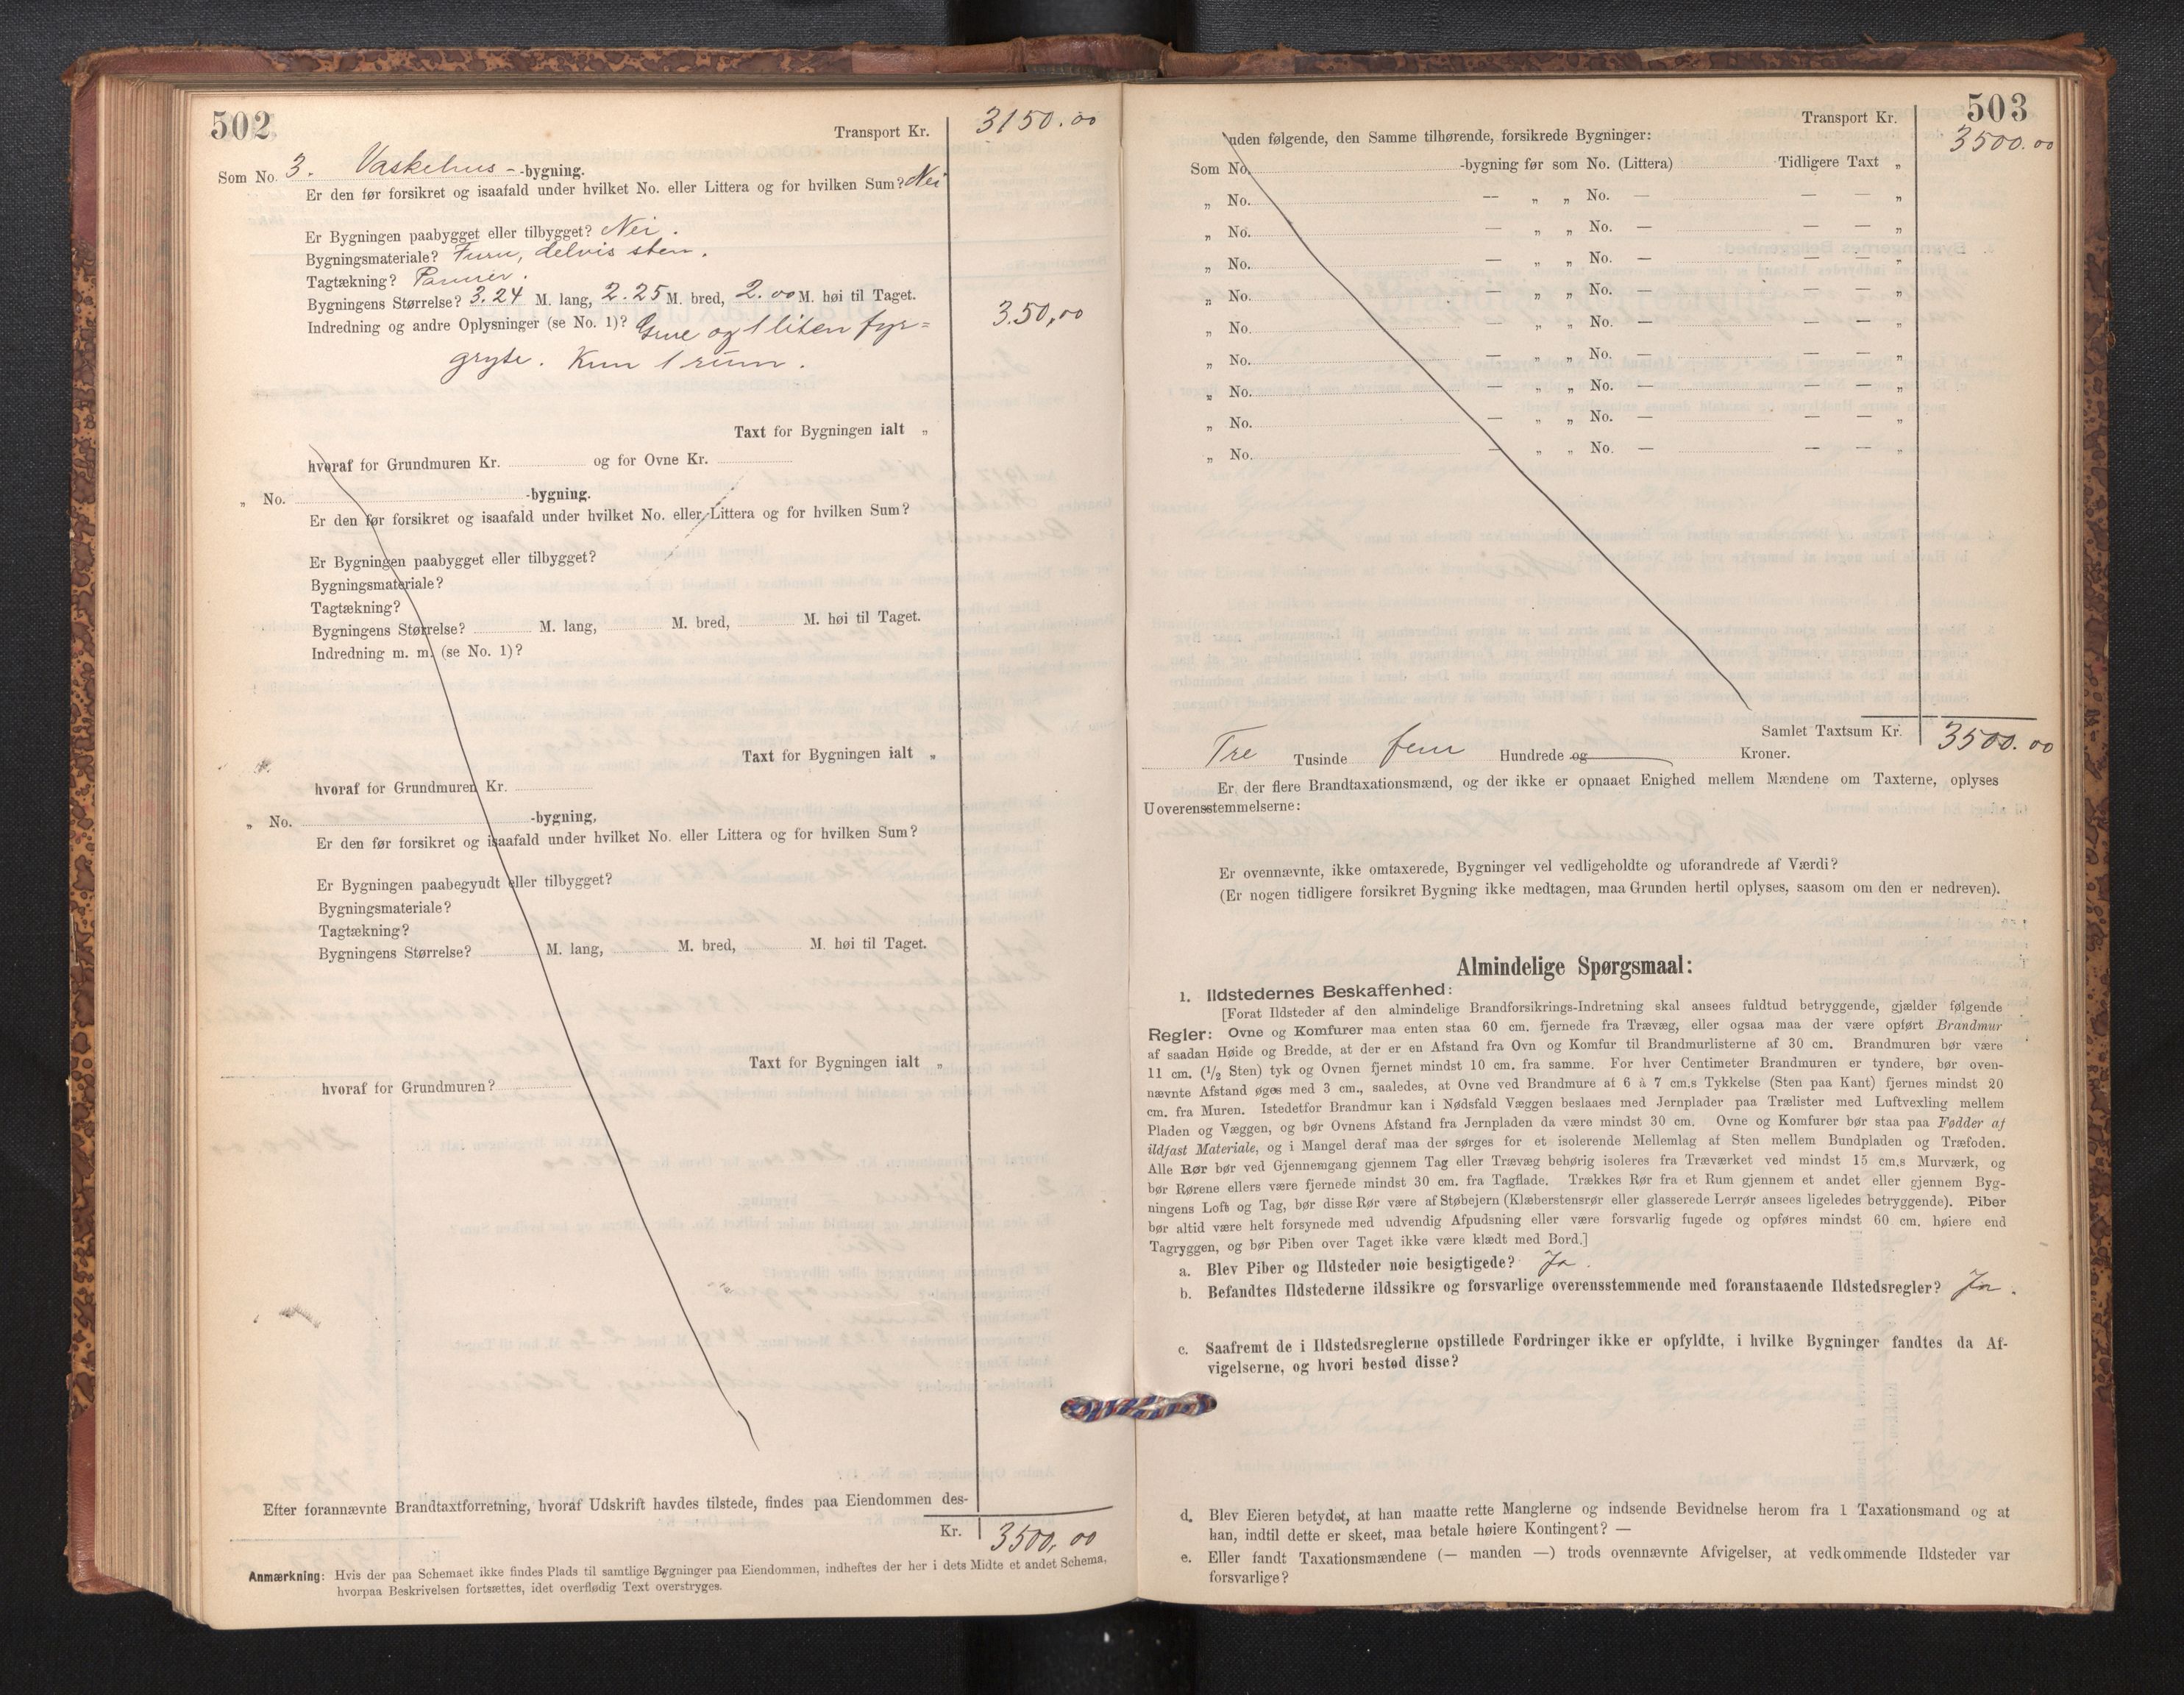 502
Transport Kr. 3150.00
Som No. 3. Vaskehus - -bygning.
Er den før forsikret og isaafald under hvilket No. eller Littera og for hvilken Sum? Nei
Er Bygningen paabygget eller tilbygget? Nei.
Bygningsmateriale? Furu, delvis sten.
Tagtækning? Panner.
Bygningens Størrelse? 3.24 M. lang, 2.25 M. bred, 2.00 M. høi til Taget.
Indredning og andre Oplysninger (se No. 1)? Grue og 1 liten fyr= 350,00
gryte. Kun 1 rum.
Taxt for Bygningen ialt „
hvoraf for Grundmuren Kr. og for Ovne Kr.
„ No. -bygning.
Er den før forsikret og isaafald under hvilket No. eller Littera og for hvilken Sum?
Er Bygningen paabygget eller tilbygget?
Bygningsmateriale?
Tagtækning?
Bygningens Størrelse? M. lang, M. bred, M. høi til Taget.
Indredning m. m. (se No. 1)?
Taxt for Bygningen ialt „
hvoraf for Grundmuren Kr.
„ No. -bygning,
Er den før forsikret og isaafald under hvilket No. eller Littera og for hvilken Sum?
Er Bygningen paabegyudt eller tilbygget?
Bygningsmateriale?
Tagtækning?
Bygningens Størrelse? M. lang, M. bred, M. høi til Taget.
Taxt for Bygningen ialt „
hvoraf for Grundmuren?
Efter forannævnte Brandtaxtforretning, hvoraf Udskrift havdes tilstede, findes paa Eiendommen des-
Kr. 3500,00
Anmærkning: Hvis der paa Schemaet ikke findes Plads til samtlige Bygninger paa Eiendommen, indheftes der her i dets Midte et andet Schema,
hvorpaa Beskrivelsen fortsættes, idet overflødig Text overstryges.
503
Transport Kr. 3500.00
uden følgende, den Samme tilhørende, forsikrede Bygninger:
Som No. -bygning før som No. (Littera) Tidligere Taxt „
„ No. — „ „ No. — — — „
„ No. — „ „ No. — — — „
„ No. — „ „ No. — — — „
„ No. — „ „ No. — — — „
„ No. — „ „ No. — — — „
„ No. — „ „ No. — — — „
„ No. — „ „ No. — — — „
„ No. — „ „ No. — — — „
„ No. — „ „ No. — — — „
Samlet Taxtsum Kr. 3500.00
Tre Tusinde fem Hundrede og Kroner.
Er der flere Brandtaxationsmænd, og der ikke er opnaaet Enighed mellem Mændene om Taxterne, oplyses
Uoverensstemmelserne:
Er ovennævnte, ikke omtaxerede, Bygninger vel vedligeholdte og uforandrede af Værdi?
(Er nogen tidligere forsikret Bygning ikke medtagen, maa Grunden hertil oplyses, saasom om den er nedreven).
Almindelige Spørgsmaal:
1. Ildstedernes Beskaffenhed:
[Forat Ildsteder af den almindelige Brandforsikrings-Indretning skal ansees fuldtud betryggende, gjælder følgende
Regler: Ovne og Komfurer maa enten staa 60 cm. fjernede fra Trævæg, eller ogsaa maa der være opført Brandmur
af saadan Høide og Bredde, at der er en Afstand fra Ovn og Komfur til Brandmurlisterne af 30 cm. Brandmuren bør være
11 cm. (1/2 Sten) tyk og Ovnen fjernet mindst 10 cm. fra samme. For hver Centimeter Brandmuren er tyndere, bør oven-
nævnte Afstand øges med 3 cm., saaledes, at Ovne ved Brandmure af 6 à 7 cm.s Tykkelse (Sten paa Kant) fjernes mindst 20
cm. fra Muren. Istedetfor Brandmur kan i Nødsfald Væggen beslaaes med Jernplader paa Trælister med Luftvexling mellem
Pladen og Væggen, og bør Ovnens Afstand fra Jernpladen da være mindst 30 cm. Ovne og Komfurer bør staa paa Fødder af
ildfast Materiale, og i Mangel deraf maa der sørges for et isolerende Mellemlag af Sten mellem Bundpladen og Træfoden.
Alle Rør bør ved Gjennemgang gjennem Tag eller Trævæg behørig isoleres fra Træværket ved mindst 15 cm.s Murværk, og
bør Rørene ellers være fjernede mindst 30 cm. fra Tagflade. Trækkes Rør fra et Rum gjennem et andet eller gjennem Byg-
ningens Loft og Tag, bør disse Rør være af Støbejern (Klæberstensrør eller glasserede Lerrør ansees ligeledes betryggende). Piber
bør altid være helt forsynede med udvendig Afpudsning eller være forsvarlig fugede og opføres mindst 60 cm. høiere end
Tagryggen, og bør Piben over Taget ikke være klædt med Bord.]
a. Blev Piber og Ildsteder nøie besigtigede? Ja.
b. Befandtes Ildstederne ildssikre og forsvarlige overensstemmende med foranstaaende Ildstedsregler? Ja.
c. Saafremt de i Ildstedsreglerne opstillede Fordringer ikke er opfyldte, i hvilke Bygninger fandtes da Af-
vigelserne, og hvori bestod disse?
d. Blev Eieren betydet, at han maatte rette Manglerne og indsende Bevidnelse herom fra 1 Taxationsmand og at
han, indtil dette er skeet, maa betale høiere Kontingent? —
e. Eller fandt Taxationsmændene (— manden —) trods ovennævnte Afvigelser, at vedkommende Ildsteder var
forsvarlige?